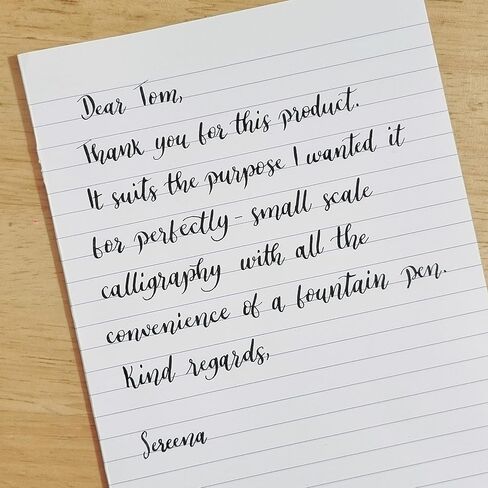 Dear Tom,
Thank you for this product.
It suits the purpose I wanted it
for perfectly - small scale
calligraphy with all the
convenience of a fountain pen.
Kind regards,
Sereena